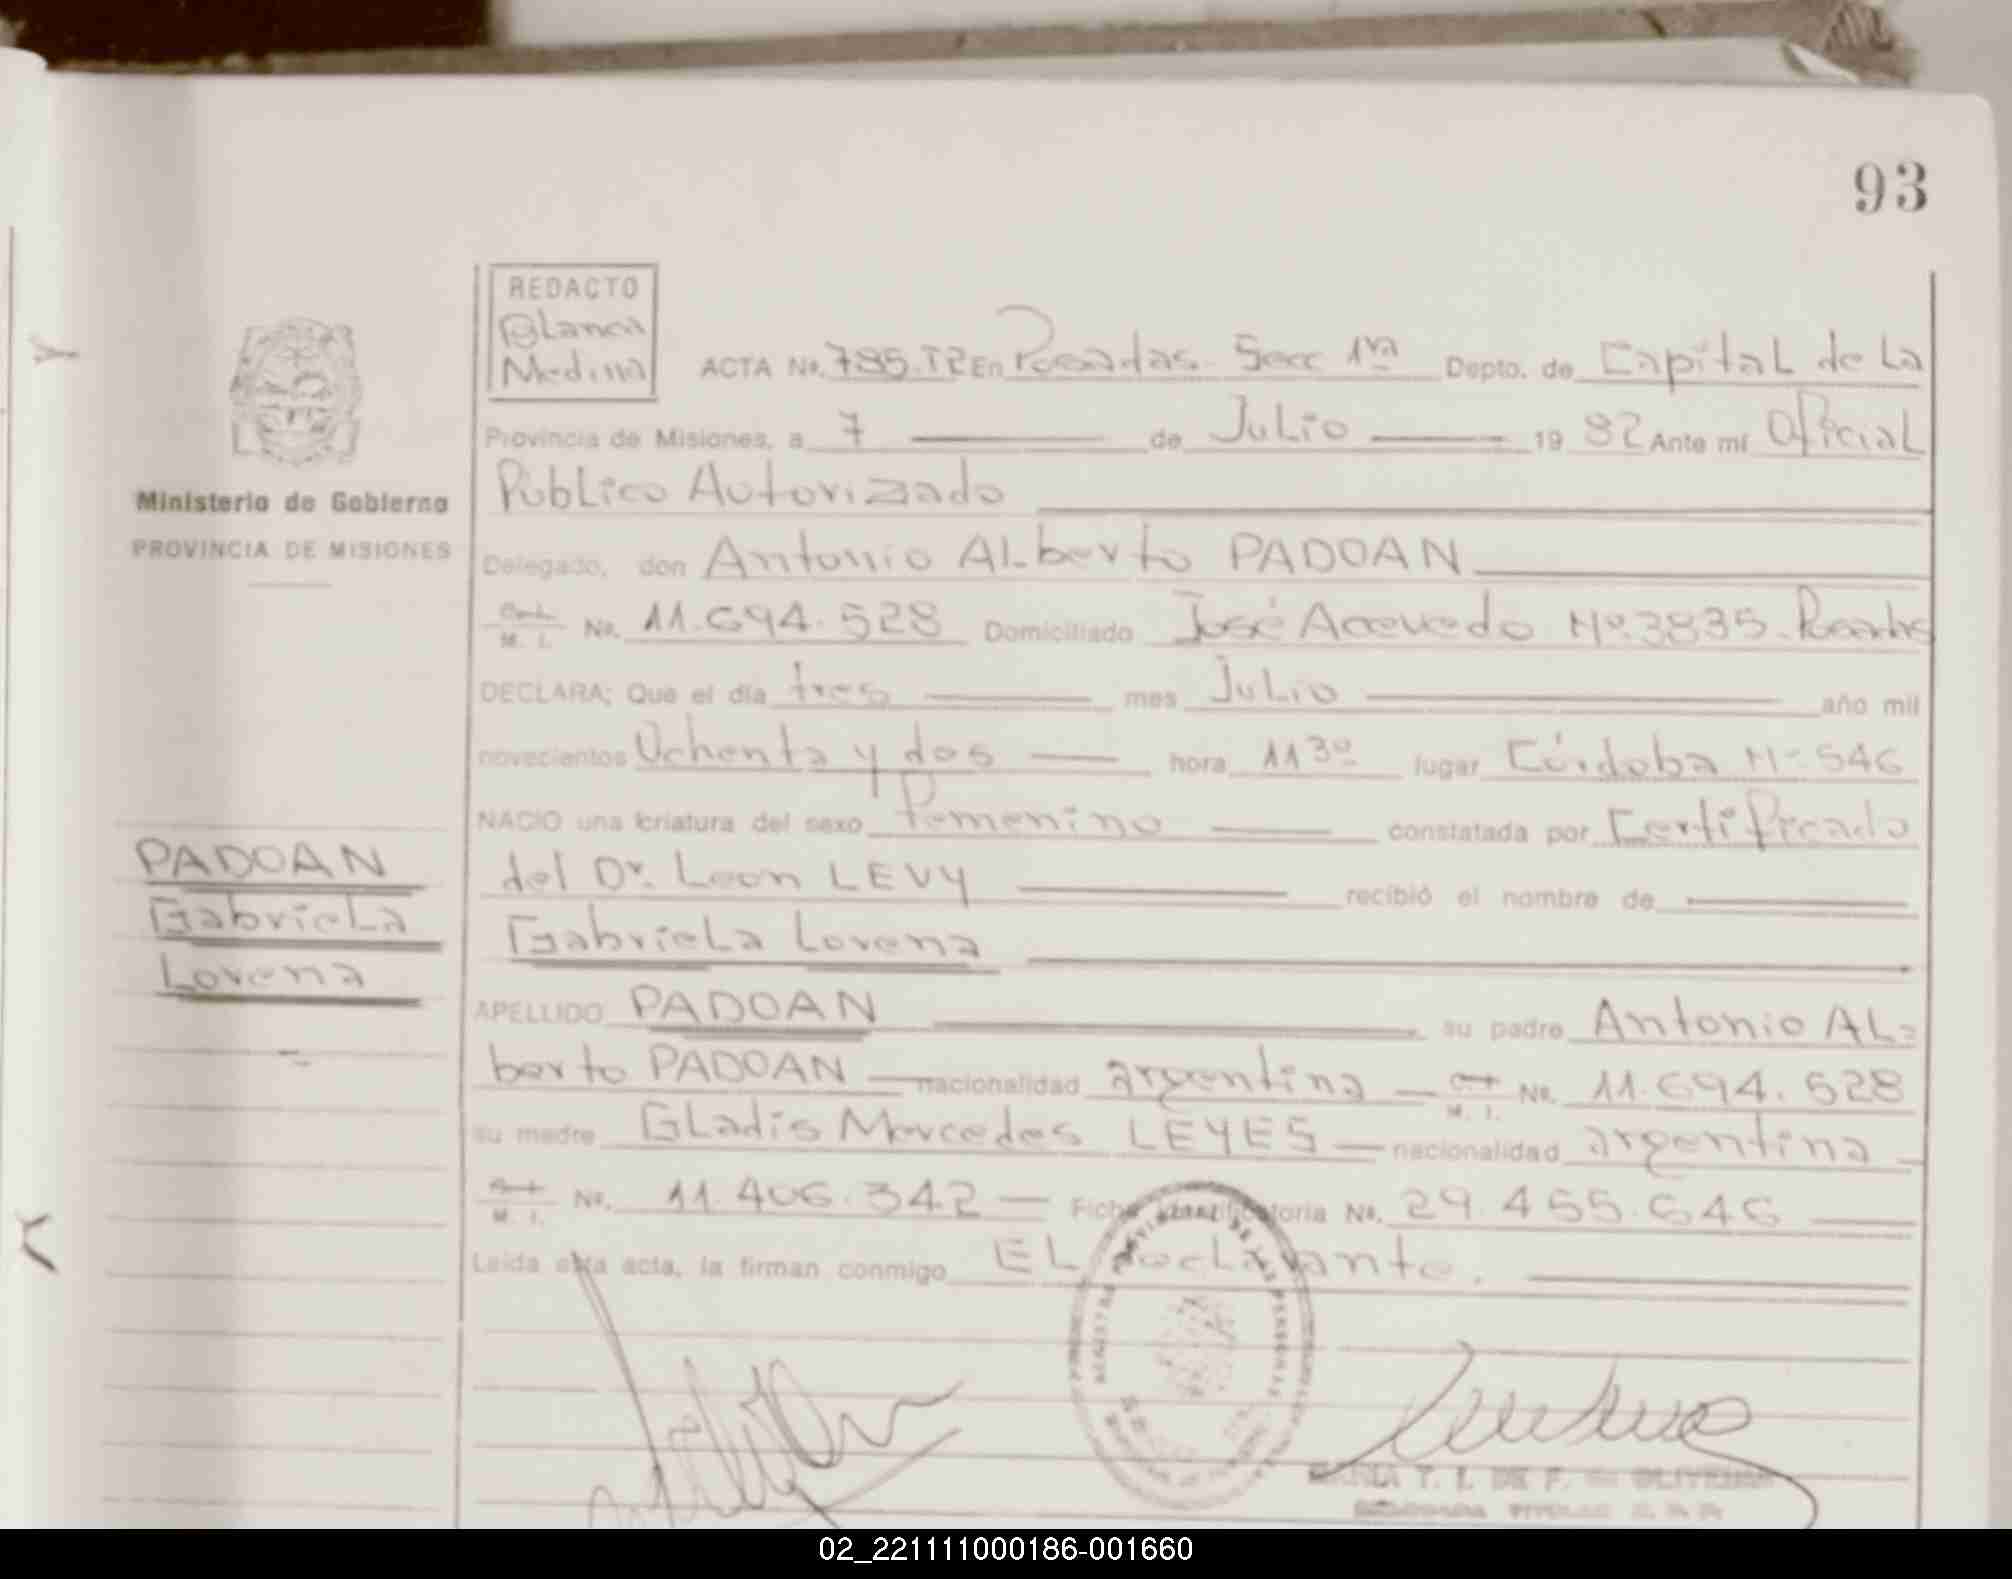 93
REDACTO
Blanca
Medina
ACTA No. 785.T2 En Posadas. Secc 1ra Depto. de Capital de La
Provincia de Misiones, a 7 de Julio 1982 Ante mí Oficial
Publico Autorizado
Ministerio de Gobierno
PROVINCIA DE MISIONES
Delegado, don Antonio Alberto PADOAN
M. I. No. 11.694.528 Domiciliado José Acevedo Nº.3835. Posadas
DECLARA; Que el día tres mes Julio año mil
novecientos Ochenta y dos hora 11 30 lugar Córdoba Nº 546
NACIO una criatura del sexo Femenino constatada por Certificado
del Dr. Leon LEVY recibió el nombre de
Gabriela Lorena
PADOAN
Gabriela
Lorena
APELLIDO PADOAN su padre Antonio Al=
berto PADOAN nacionalidad argentina M. I. No. 11.694.528
su madre Gladis Mercedes LEYES nacionalidad argentina
M. I. No. 11.406.342 Ficha identificatoria No. 29.455.646
Leída esta acta, la firman conmigo El declarante.
T. I. DE F. DE OLIVEIRA
02_221111000186-001660